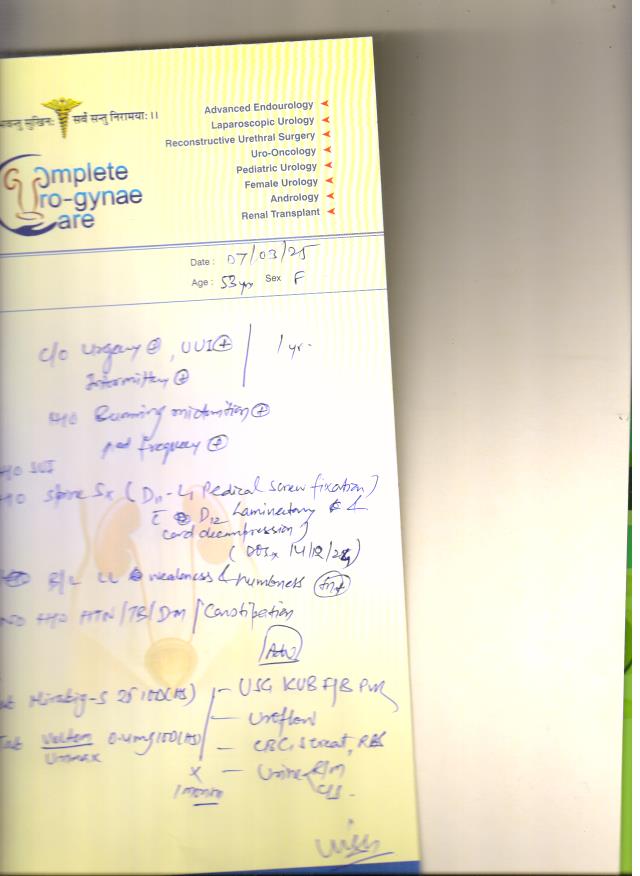 भवन्तु सुखिनः सर्वे सन्तु निरामयाः ।।
Complete
Uro-gynae
Care
Advanced Endourology
Laparoscopic Urology
Reconstructive Urethral Surgery
Uro-Oncology
Pediatric Urology
Female Urology
Andrology
Renal Transplant
Date : 07/03/25
Age : 53 yr Sex F
C/O Urgency ⊕, UUI ⊕ | 1 yr.
Intermittency ⊕
H/O Burning micturition ⊕
frequency ⊕
H/O SUI
H/O Spine Sx (D11-L1 Pedical screw fixation)
c̄ D12 Laminectomy &
cord decompression)
(DOSx 14/12/24)
B/L LL weakness & numbness
No H/O HTN/TB/DM/Constipation
Adv
Mirabig-S 25 1OD(HS) - USG KUB F/B PVR
- Uroflow
Tab 0.4mg 1OD(HS) - CBC, S creat, RBS
Urimax
x - Urine R/M
1 month C/S.